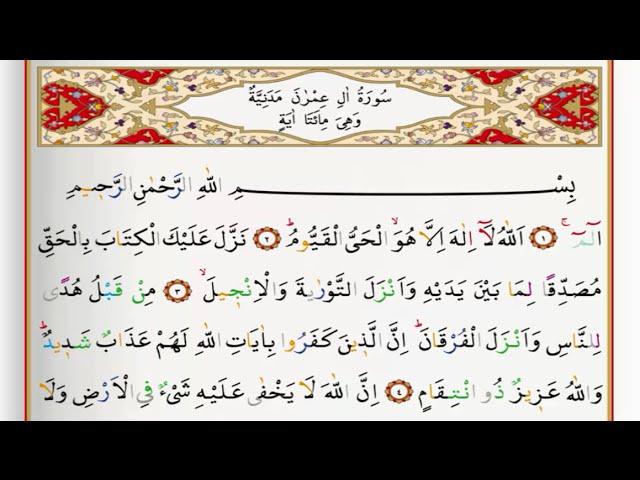 سُورَةُ اٰلِ عِمْرٰنَ مَدَنِيَّةٌ
وَهِيَ مِائَتَا اٰيَةٍ
بِسْمِ اللّٰهِ الرَّحْمٰنِ الرَّحٖيمِ
الٓمٓ ۚ ﴿١﴾ اَللّٰهُ لَٓا اِلٰهَ اِلَّا هُوَۙ الْحَيُّ الْقَيُّومُؕ ﴿٢﴾ نَزَّلَ عَلَيْكَ الْكِتَابَ بِالْحَقِّ
مُصَدِّقًا لِمَا بَيْنَ يَدَيْهِ وَاَنْزَلَ التَّوْرٰيةَ وَالْاِنْجٖيلَۙ ﴿٣﴾ مِنْ قَبْلُ هُدًى
لِلنَّاسِ وَاَنْزَلَ الْفُرْقَانَؕ اِنَّ الَّذٖينَ كَفَرُوا بِاٰيَاتِ اللّٰهِ لَهُمْ عَذَابٌ شَدٖيدٌؕ
وَاللّٰهُ عَزٖيزٌ ذُو انْتِقَامٍ ﴿٤﴾ اِنَّ اللّٰهَ لَا يَخْفٰى عَلَيْهِ شَيْءٌ فِي الْاَرْضِ وَلَا